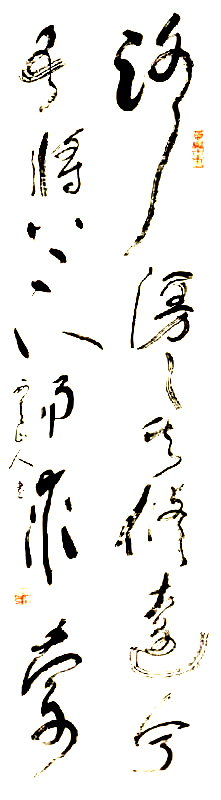 路漫々其修遠兮
吾將上下而求索